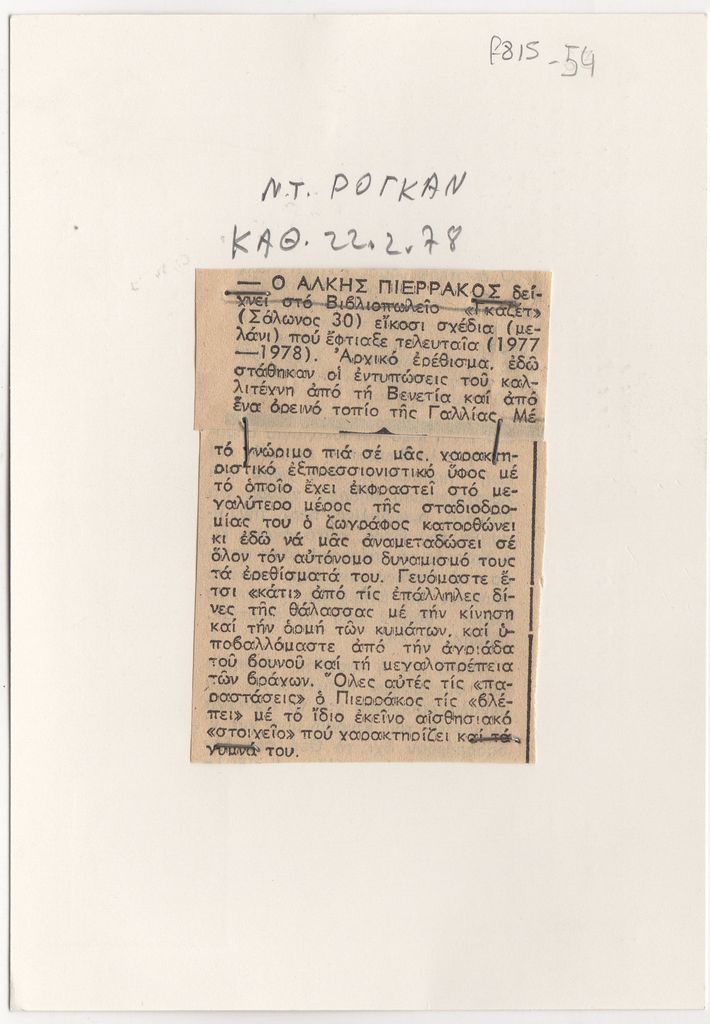 F815-54
Ν.Τ. ΡΟΓΚΑΝ
ΚΑΘ. 22.2.78
— Ο ΑΛΚΗΣ ΠΙΕΡΡΑΚΟΣ δεί-
χνει στό Βιβλιοπωλεῖο «Γκαζέτ»
(Σόλωνος 30) εἴκοσι σχέδια (με-
λάνι) πού ἔφτιαξε τελευταῖα (1977
—1978). Ἀρχικό ἐρέθισμα, ἐδῶ
στάθηκαν οἱ ἐντυπώσεις τοῦ καλ-
λιτέχνη ἀπό τή Βενετία καί ἀπό
ἕνα ὀρεινό τοπίο τῆς Γαλλίας. Μέ
τό γνώριμο πιά σέ μᾶς, χαρακτη-
ριστικό ἐξπρεσσιονιστικό ὕφος μέ
τό ὁποῖο ἔχει ἐκφραστεῖ στό με-
γαλύτερο μέρος τῆς σταδιοδρο-
μίας του ὁ ζωγράφος κατορθώνει
κι ἐδῶ νά μᾶς ἀναμεταδώσει σέ
ὅλον τόν αὐτόνομο δυναμισμό τους
τά ἐρεθίσματά του. Γευόμαστε ἔ-
τσι «κάτι» ἀπό τίς ἐπάλληλες δί-
νες τῆς θάλασσας μέ τήν κίνηση
καί τήν ὁρμή τῶν κυμάτων, καί ὑ-
ποβαλλόμαστε ἀπό τήν ἀγριάδα
τοῦ βουνοῦ καί τή μεγαλοπρέπεια
τῶν βράχων. Ὅλες αὐτές τίς «πα-
ραστάσεις» ὁ Πιερράκος τίς «βλέ-
πει» μέ τό ἴδιο ἐκεῖνο αἰσθησιακό
«στοιχεῖο» πού χαρακτηρίζει καί τά
γυμνά του.